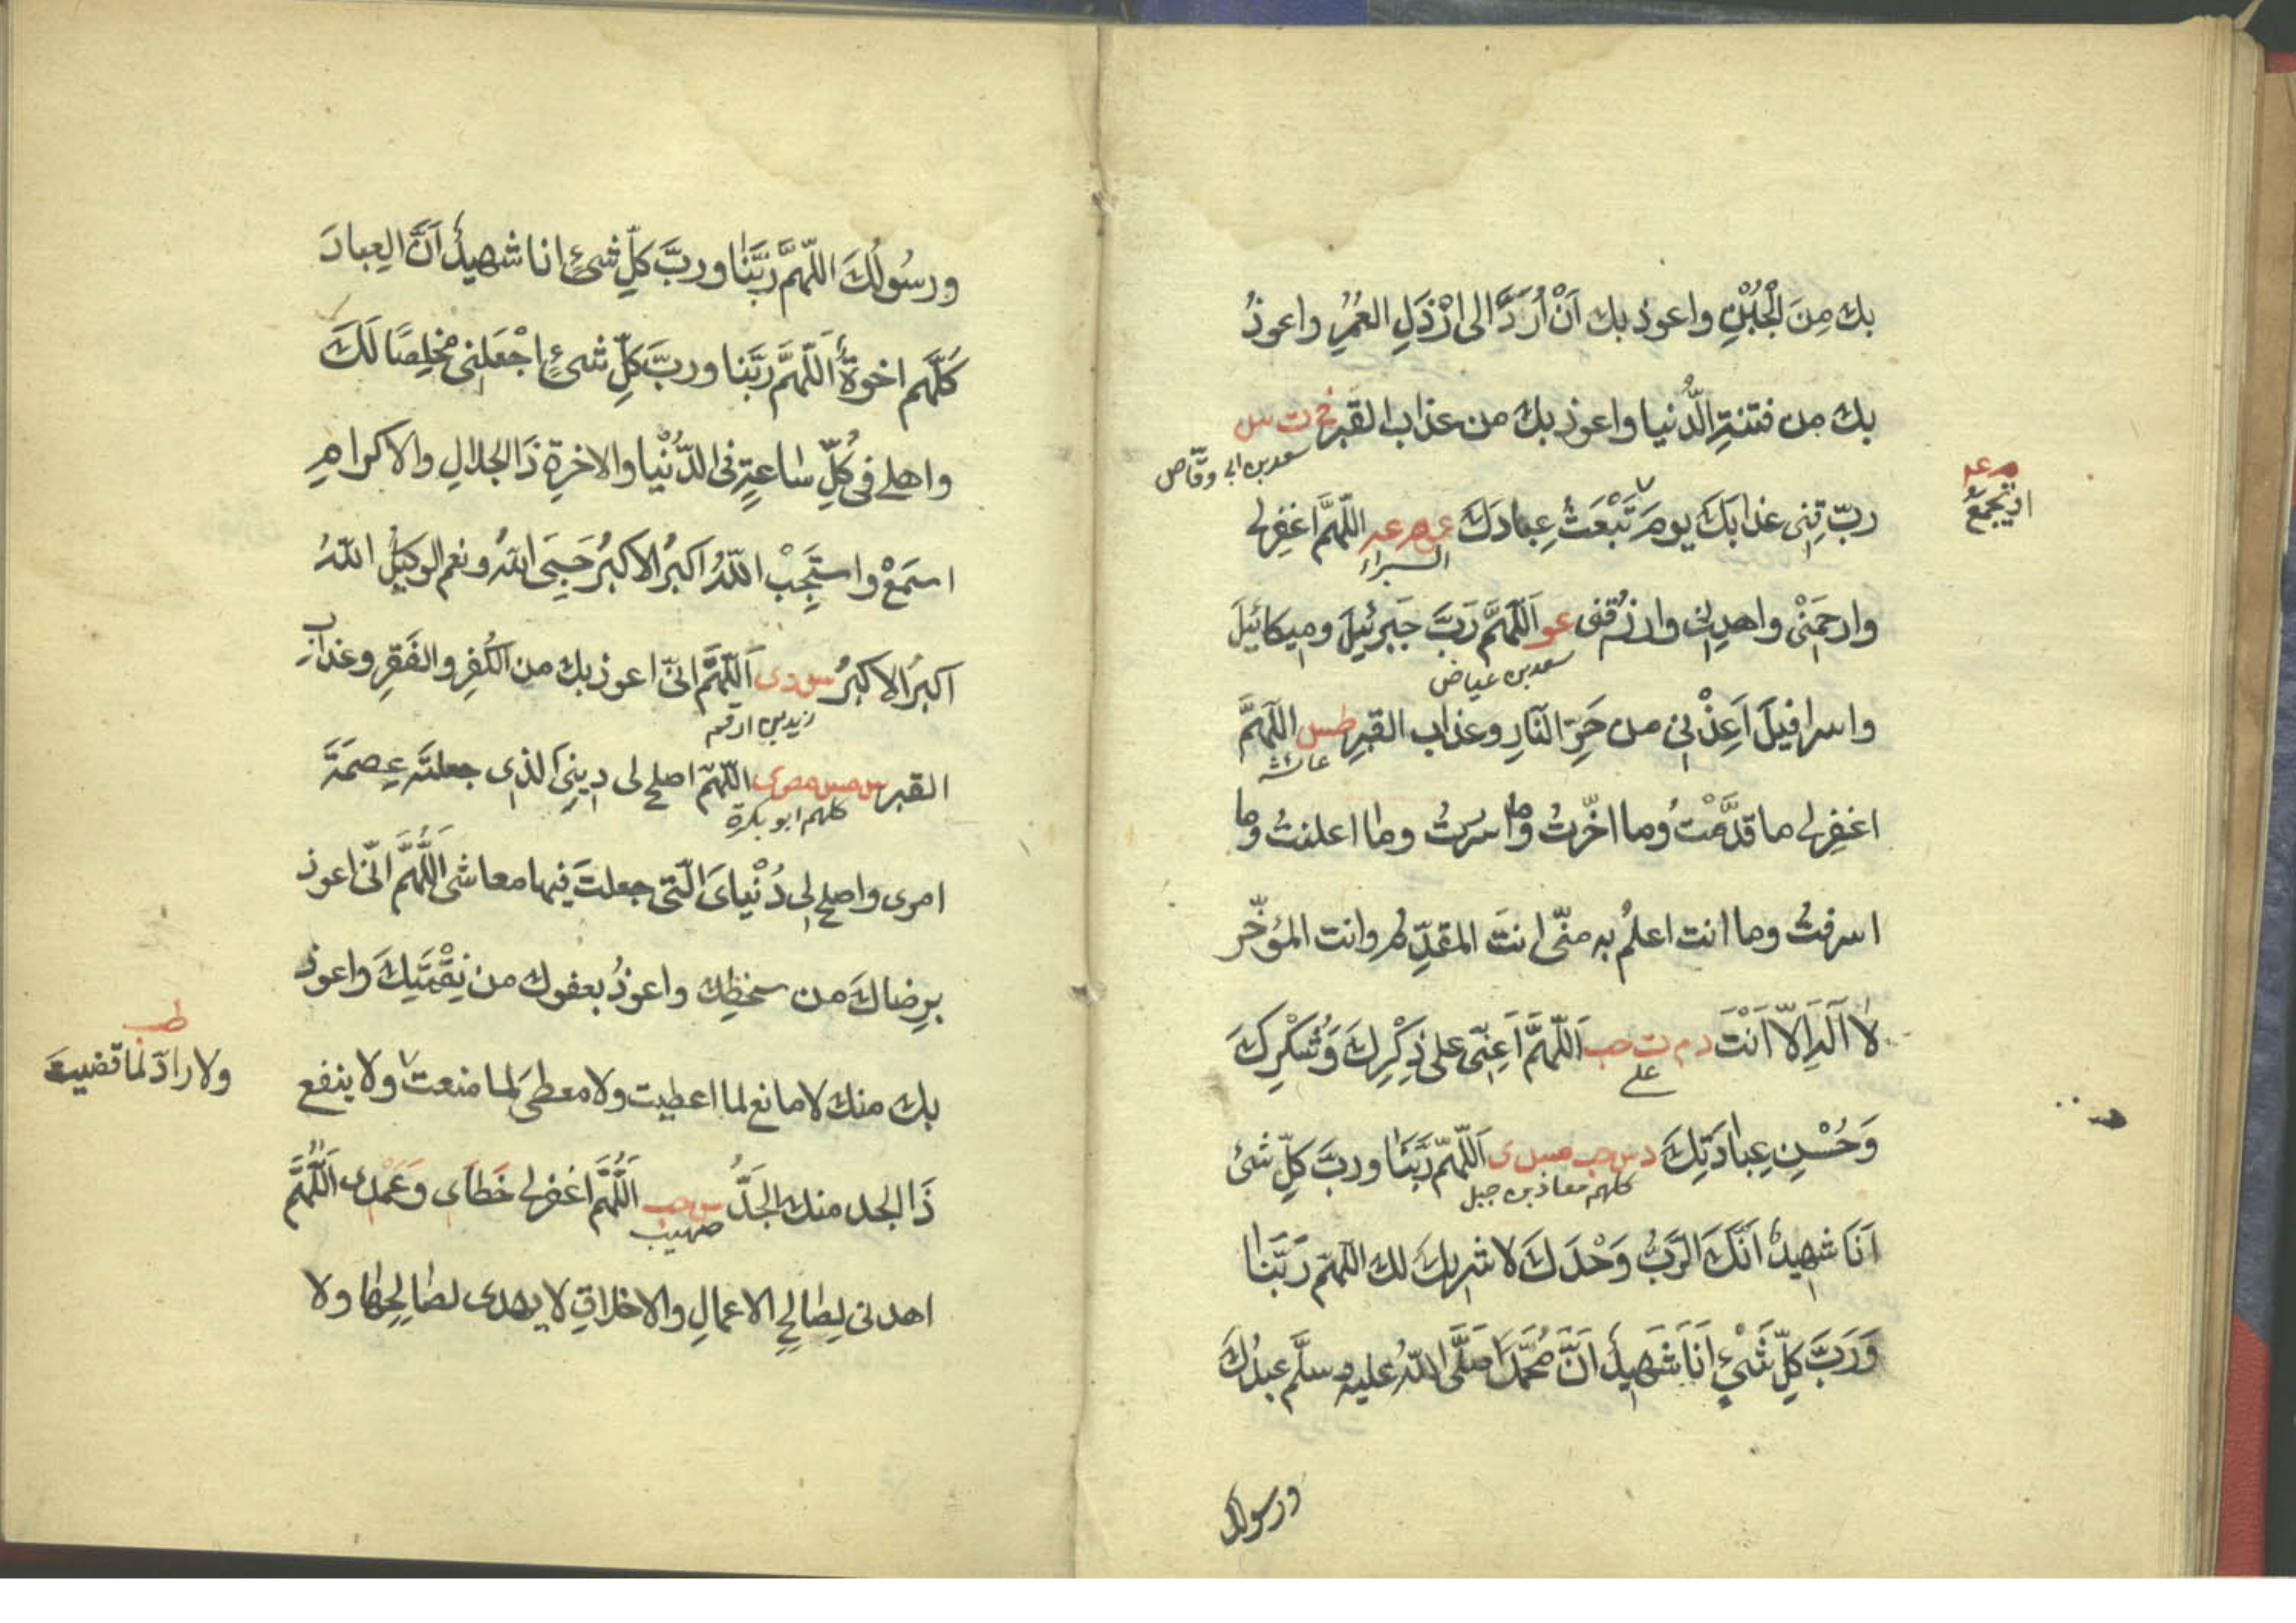 بك مِنَ الْجُبْنِ واعوذ بك اَنْ اُرَدَّ الى ارْذَلِ العُمُرِ واعوذُ
بك من فتنةِ الدُّنيا واعوذ بك من عذاب القبر خ ت س
سعد بن ابى وقّاص
م عه
اَوْ تجمعُ
ربّ قِنِى عذابَكَ يومَ تَبْعَثُ عِبادَكَ عو م عه اللّهمَّ اغفِر لى
البراء
وارحَمْنْى واهدِنى وارزُقنى عو اَللّهمَّ رَبَّ جَبرئيلَ وميكائيلَ
سعد بن عياض
واسرافيلَ اَعِذْنى من حَرِّ النَّارِ وعذابِ القبرِ طس اللّهمَّ
عائشة
اغفِر لى ما قدَّمْتُ وما اخّرتُ وما اسررتُ وما اعلنتُ وما
اسرفتُ وما انت اعلمُ به منّى انتَ المقدِّم وانت المؤخّر
لا الٰهَ اِلاّ اَنْتَ د م ت حب اَللّهمَّ اَعِنّى على ذِكْرِكَ وَشُكْرِكَ
على
وَحُسْنِ عِبادَتِكَ د س حب مس ى اَللّهمّ رَبَّنَا وربَّ كلِّ شئ
كلهم معاذ بن جبل
اَنَا شهيدٌ انَّكَ الرَّبُّ وَحْدَكَ لا شريكَ لك اللّهمّ رَبَّنَا
وَرَبَّ كلِّ شَىْءٍ اَنَا شَهيدٌ اَنَّ مُحَمَّدًا صَلَّى اللّهُ عليه وسلَّم عبدُكَ
ورسولك
ورسُولُكَ اللّهمَّ رَبَّنَا وربَّ كلِّ شئٍ انا شهيدٌ اَنَّ العِبادَ
كلَّهم اخوةٌ اَللّهمَّ رَبَّنا وربَّ كلِّ شئٍ اجْعَلنى مخلِصًا لَكَ
واهلى فى كُلِّ ساعةٍ فى الدُّنْيا والاخرةِ ذَا الجلالِ والاكرامِ
اسمَعْ واستَجِبْ اللّهُ اكبرُ الاكبرُ حَسبِىَ اللّهُ ونعم الوكيلُ اللّهُ
اكبرُ الاكبرُ س د ى اَللّهمَّ انّى اعوذ بك من الكُفرِ والفَقرِ وعذاب
زيد بن ارقم
القبر س مس مص ى اللّهمّ اصلح لى دِينِىَ الذى جعلتَه عِصمَةَ
كلهم ابو بكرة
امرى واصلح لى دُنْياىَ الّتى جعلتَ فيها معاشى اَللّهُمَّ انّى اعوذ
برِضاكَ من سخطِك واعوذُ بعفوك من نِقْمَتِكَ واعوذ
بك منك لا مانع لما اعطيت ولا معطىَ لما منعت ولا ينفع
طب
ولا رادّ لما قضيت
ذَا الجد منك الجَدُّ س حب اَللّهُمَّ اغفر لى خَطاَى وَعَمْدى اَللّهُمَّ
صهيب
اهدنى لِصالِحِ الاعمالِ والاخلاقِ لا يهدى لصالِحِها ولا